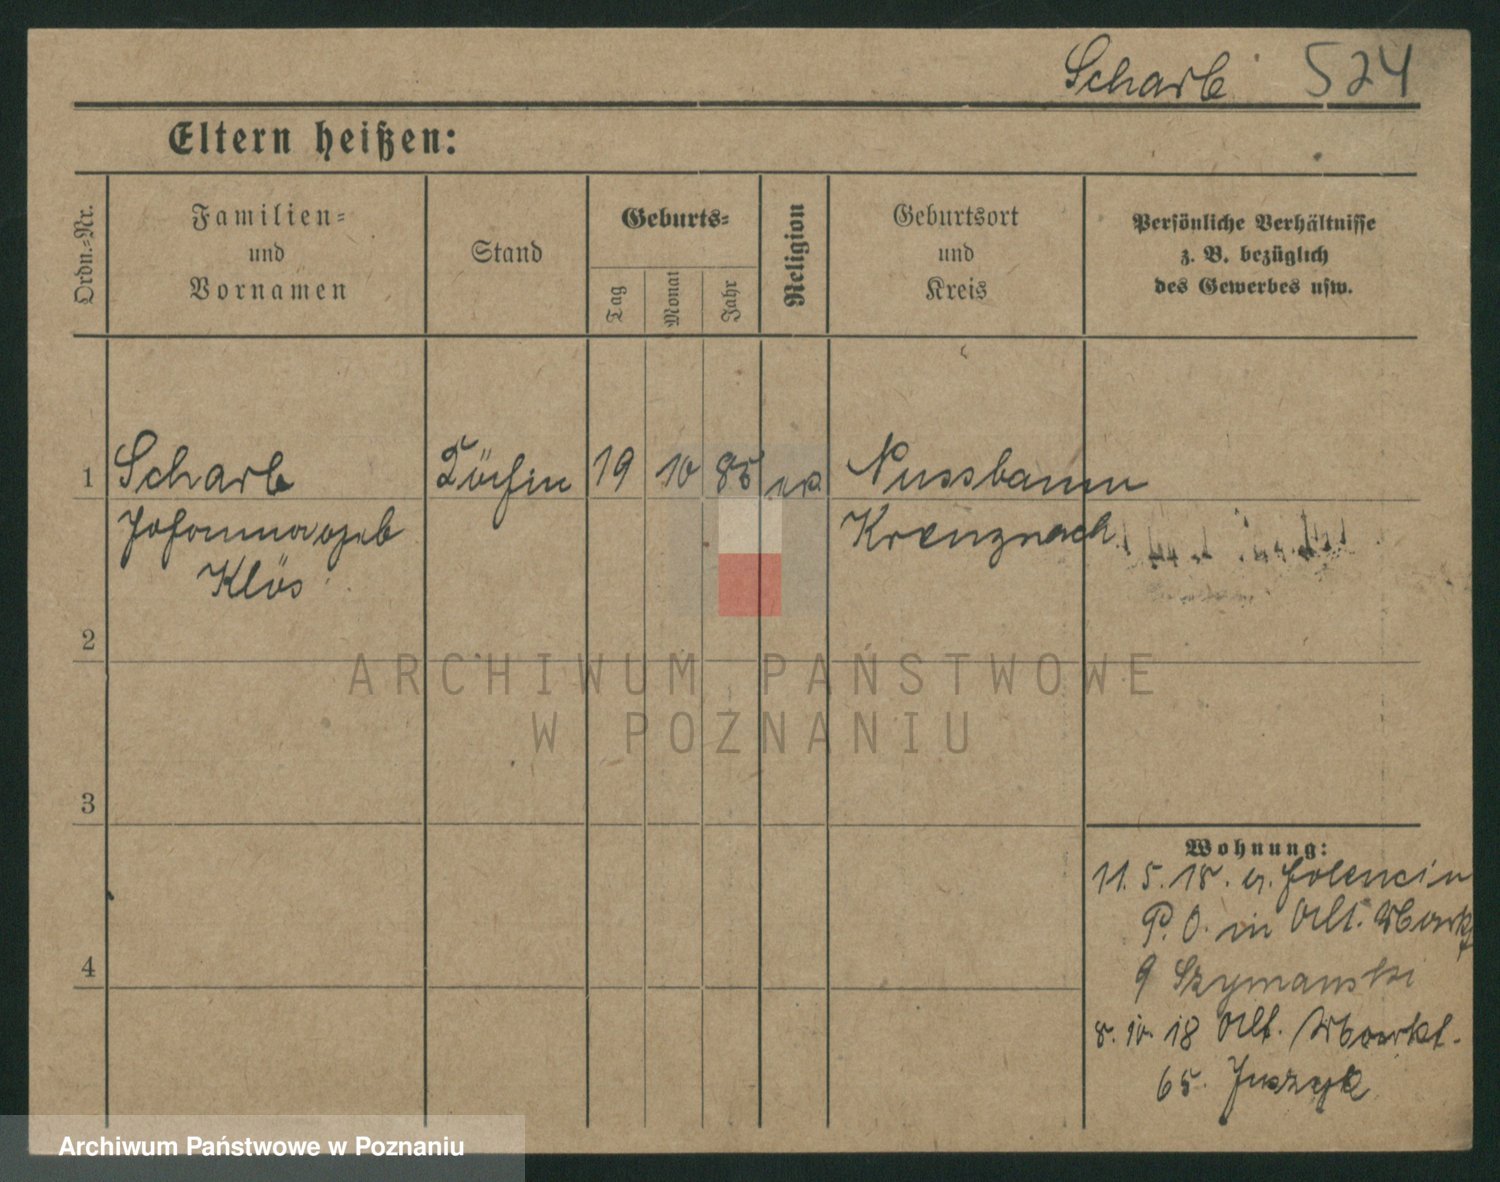 Scharb 524
Eltern heißen:
Ordn.-Nr.
Familien-
und
Vornamen
Stand
Geburts-
Tag
Monat
Jahr
Religion
Geburtsort
und
Kreis
Persönliche Verhältnisse
z. B. bezüglich
des Gewerbes usw.
1 Scharb Köchin 19 10 85 Nussbaum
Johanna geb Kreuznach
Klös
2
3
4
Wohnung:
11. 5. 18.
P. O. in Alt. Markt
9 Szymanski
8. 10. 18 Alt. Markt.
65.
ARCHIWUM PAŃSTWOWE
W POZNANIU
Archiwum Państwowe w Poznaniu